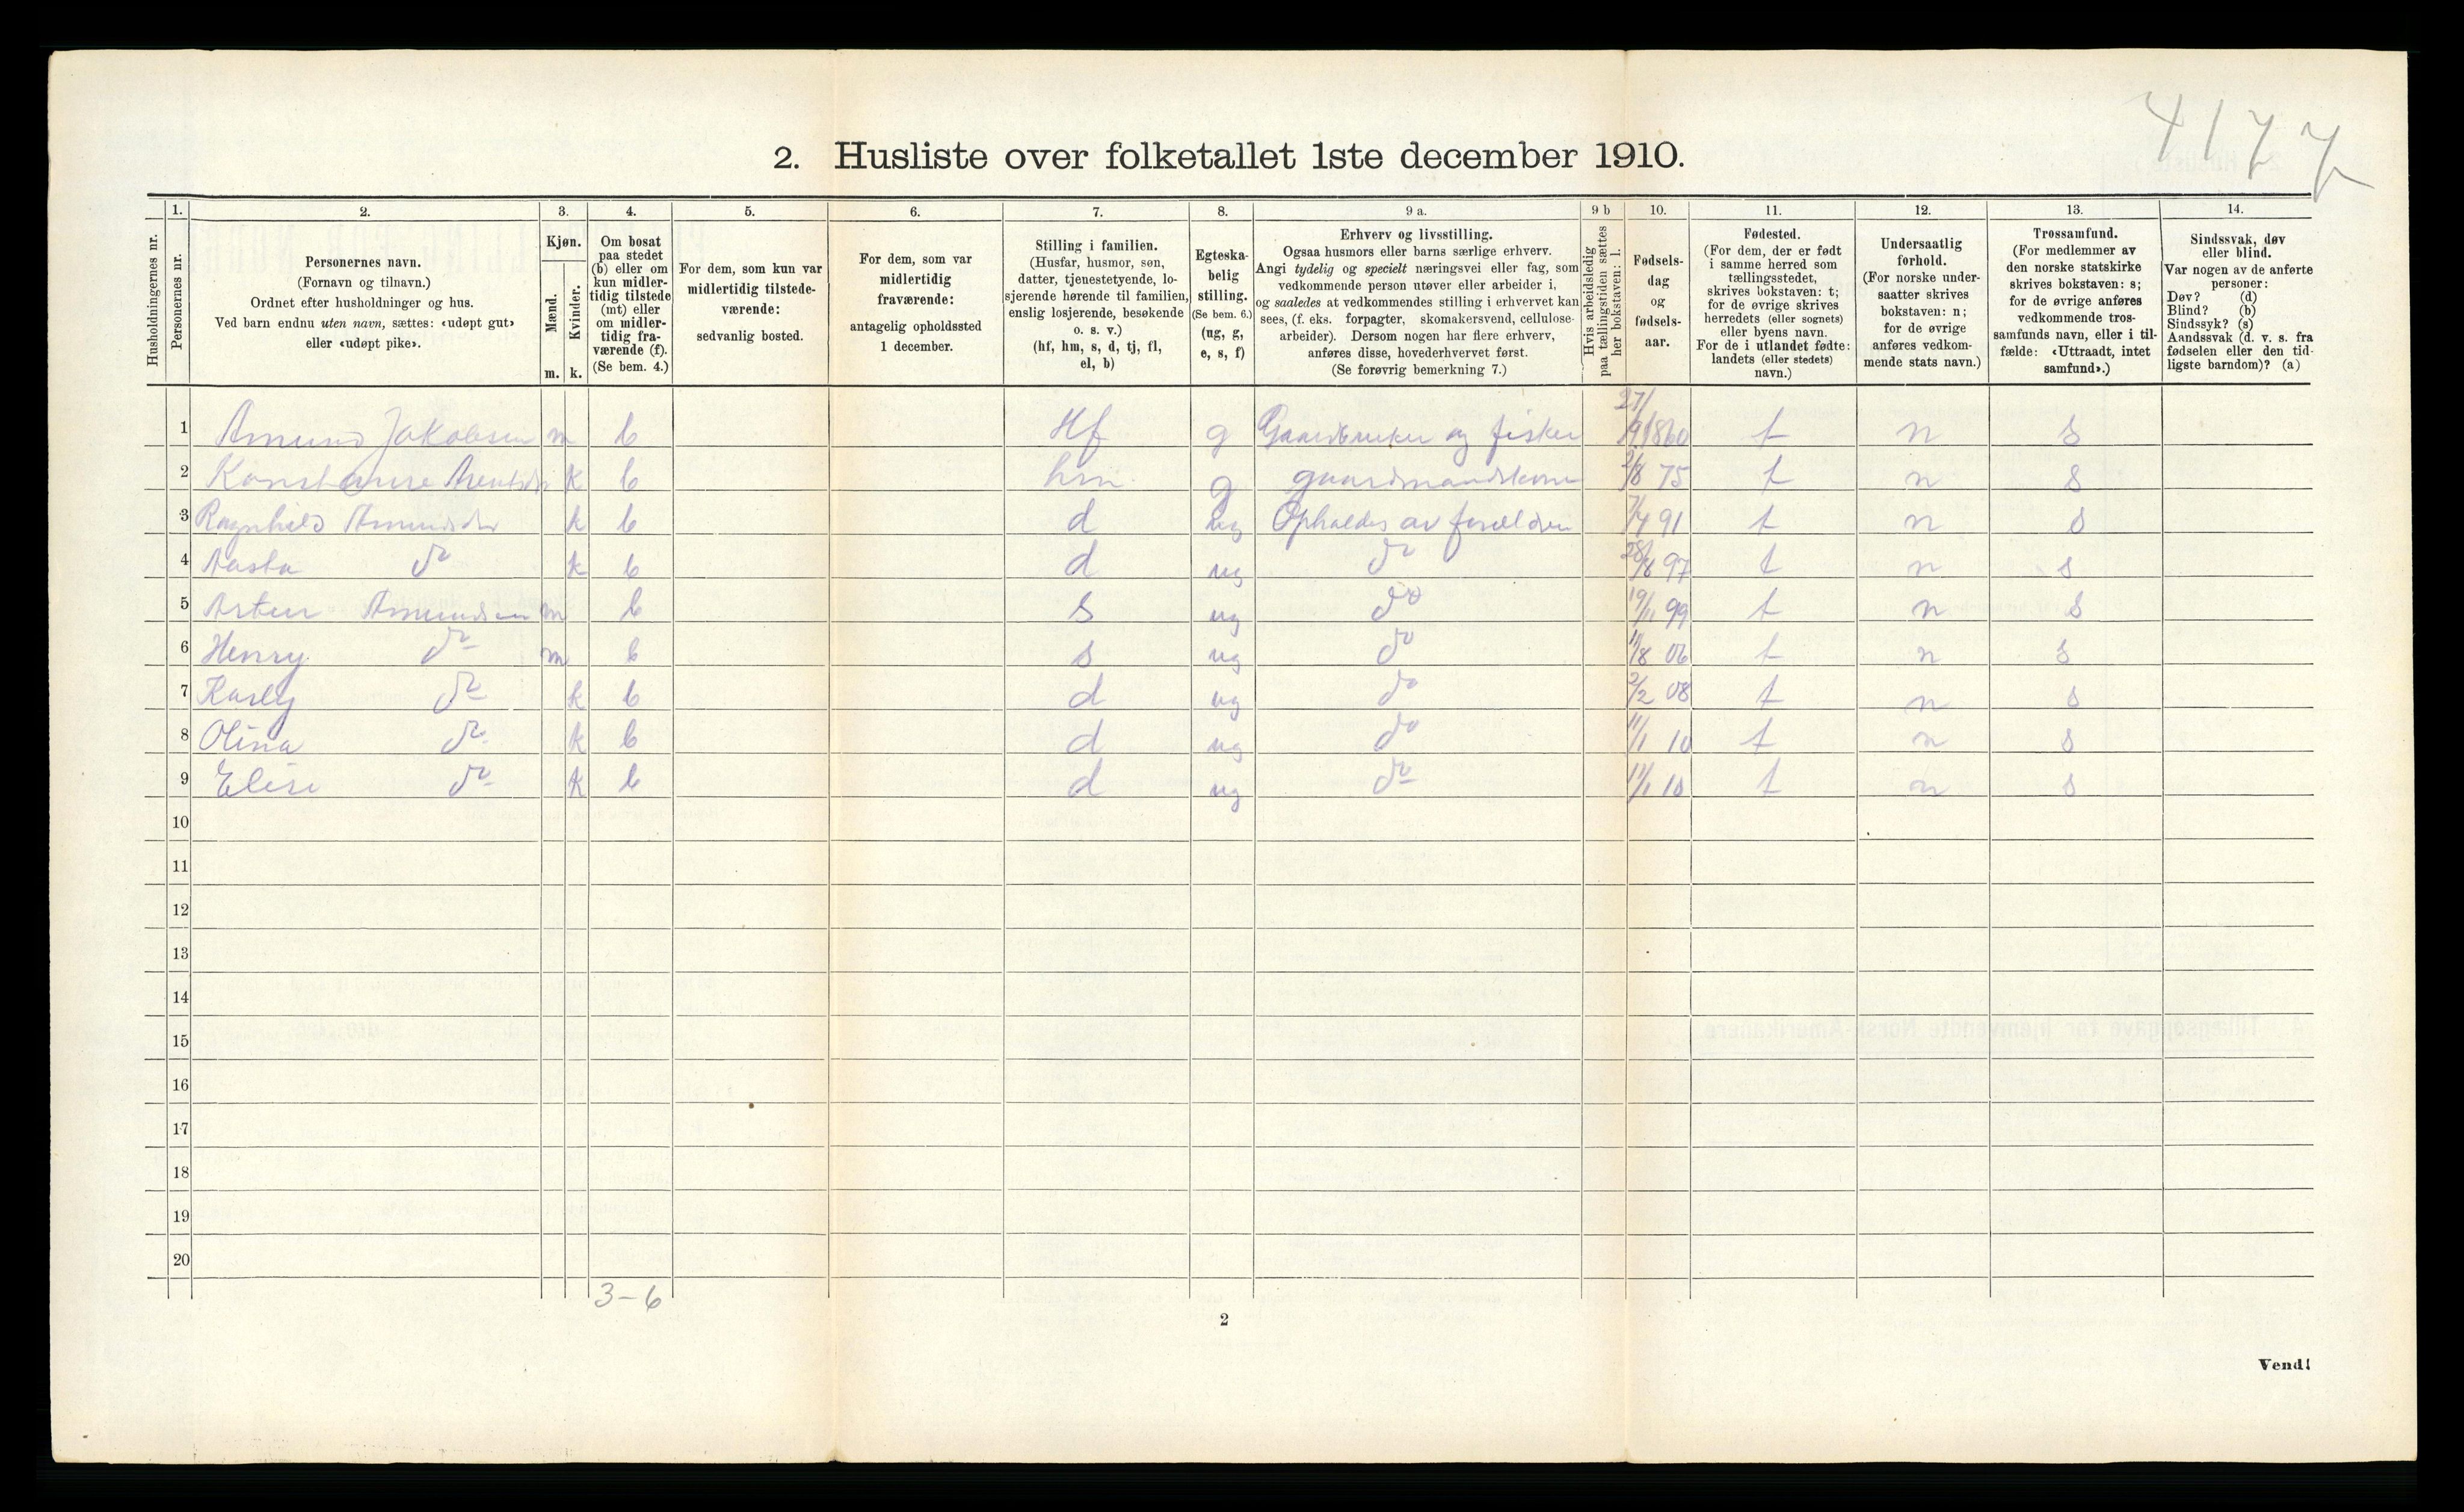 4177
2. Husliste over folketallet 1ste december 1910.
Husholdningernes nr.
1. Personernes nr.
2. Personernes navn.
(Fornavn og tilnavn.)
Ordnet efter husholdninger og hus.
Ved barn endnu uten navn, sættes: «udøpt gut»
eller «udøpt pike».
3. Kjøn.
Mænd. m.
Kvinder. k.
4. Om bosat
paa stedet
(b) eller om
kun midler-
tidig tilstede
(mt) eller
om midler-
tidig fra-
værende (f).
(Se bem. 4.)
5. For dem, som kun var
midlertidig tilstede-
værende:
sedvanlig bosted.
6. For dem, som var
midlertidig
fraværende:
antagelig opholdssted
1 december.
7. Stilling i familien.
(Husfar, husmor, søn,
datter, tjenestetyende, lo-
sjerende hørende til familien,
enslig losjerende, besøkende
o. s. v.)
(hf, hm, s, d, tj, fl,
el, b)
8. Egteska-
belig
stilling.
(Se bem. 6.)
(ug, g,
e, s, f)
9 a. Erhverv og livsstilling.
Ogsaa husmors eller barns særlige erhverv.
Angi tydelig og specielt næringsvei eller fag, som
vedkommende person utøver eller arbeider i,
og saaledes at vedkommendes stilling i erhvervet kan
sees, (f. eks. forpagter, skomakersvend, cellulose-
arbeider). Dersom nogen har flere erhverv,
anføres disse, hovederhvervet først.
(Se forøvrig bemerkning 7.)
9 b Hvis arbeidsledig
paa tællingstiden sættes
her bokstaven: l.
10. Fødsels-
dag
og
fødsels-
aar.
11. Fødested.
(For dem, der er født
i samme herred som
tællingsstedet,
skrives bokstaven: t;
for de øvrige skrives
herredets (eller sognets)
eller byens navn.
For de i utlandet fødte:
landets (eller stedets)
navn.)
12. Undersaatlig
forhold.
(For norske under-
saatter skrives
bokstaven: n;
for de øvrige
anføres vedkom-
mende stats navn.)
13. Trossamfund.
(For medlemmer av
den norske statskirke
skrives bokstaven: s;
for de øvrige anføres
vedkommende tros-
samfunds navn, eller i til-
fælde: «Uttraadt, intet
samfund».)
14. Sindssvak, døv
eller blind.
Var nogen av de anførte
personer:
Døv? (d)
Blind? (b)
Sindssyk? (s)
Aandssvak (d. v. s. fra
fødselen eller den tid-
ligste barndom)? (a)
1 Amund Jakobsen m b Hf g Gaardbruker og fisker 27/9 1860 t n s
2 Konstanse Arentsdr k b hm g gaardmandskone 2/8 75 t n s
3 Ragnhild Amundsdr k b d ug Opholdes av forældren 7/4 91 t n s
4 Aasta do k b d ug do 97 t n s
5 Artur Amundsen m b s ug do 19/11 99 t n s
6 Henry do m b s ug do 11/8 06 t n s
7 Karly do k b d ug do 2/2 08 t n s
8 Olina do k b d ug do 11/1 10 t n s
9 Elise do k b d ug do 11/1 10 t n s
10
11
12
13
14
15
16
17
18
19
20
3-6
2
Vend!